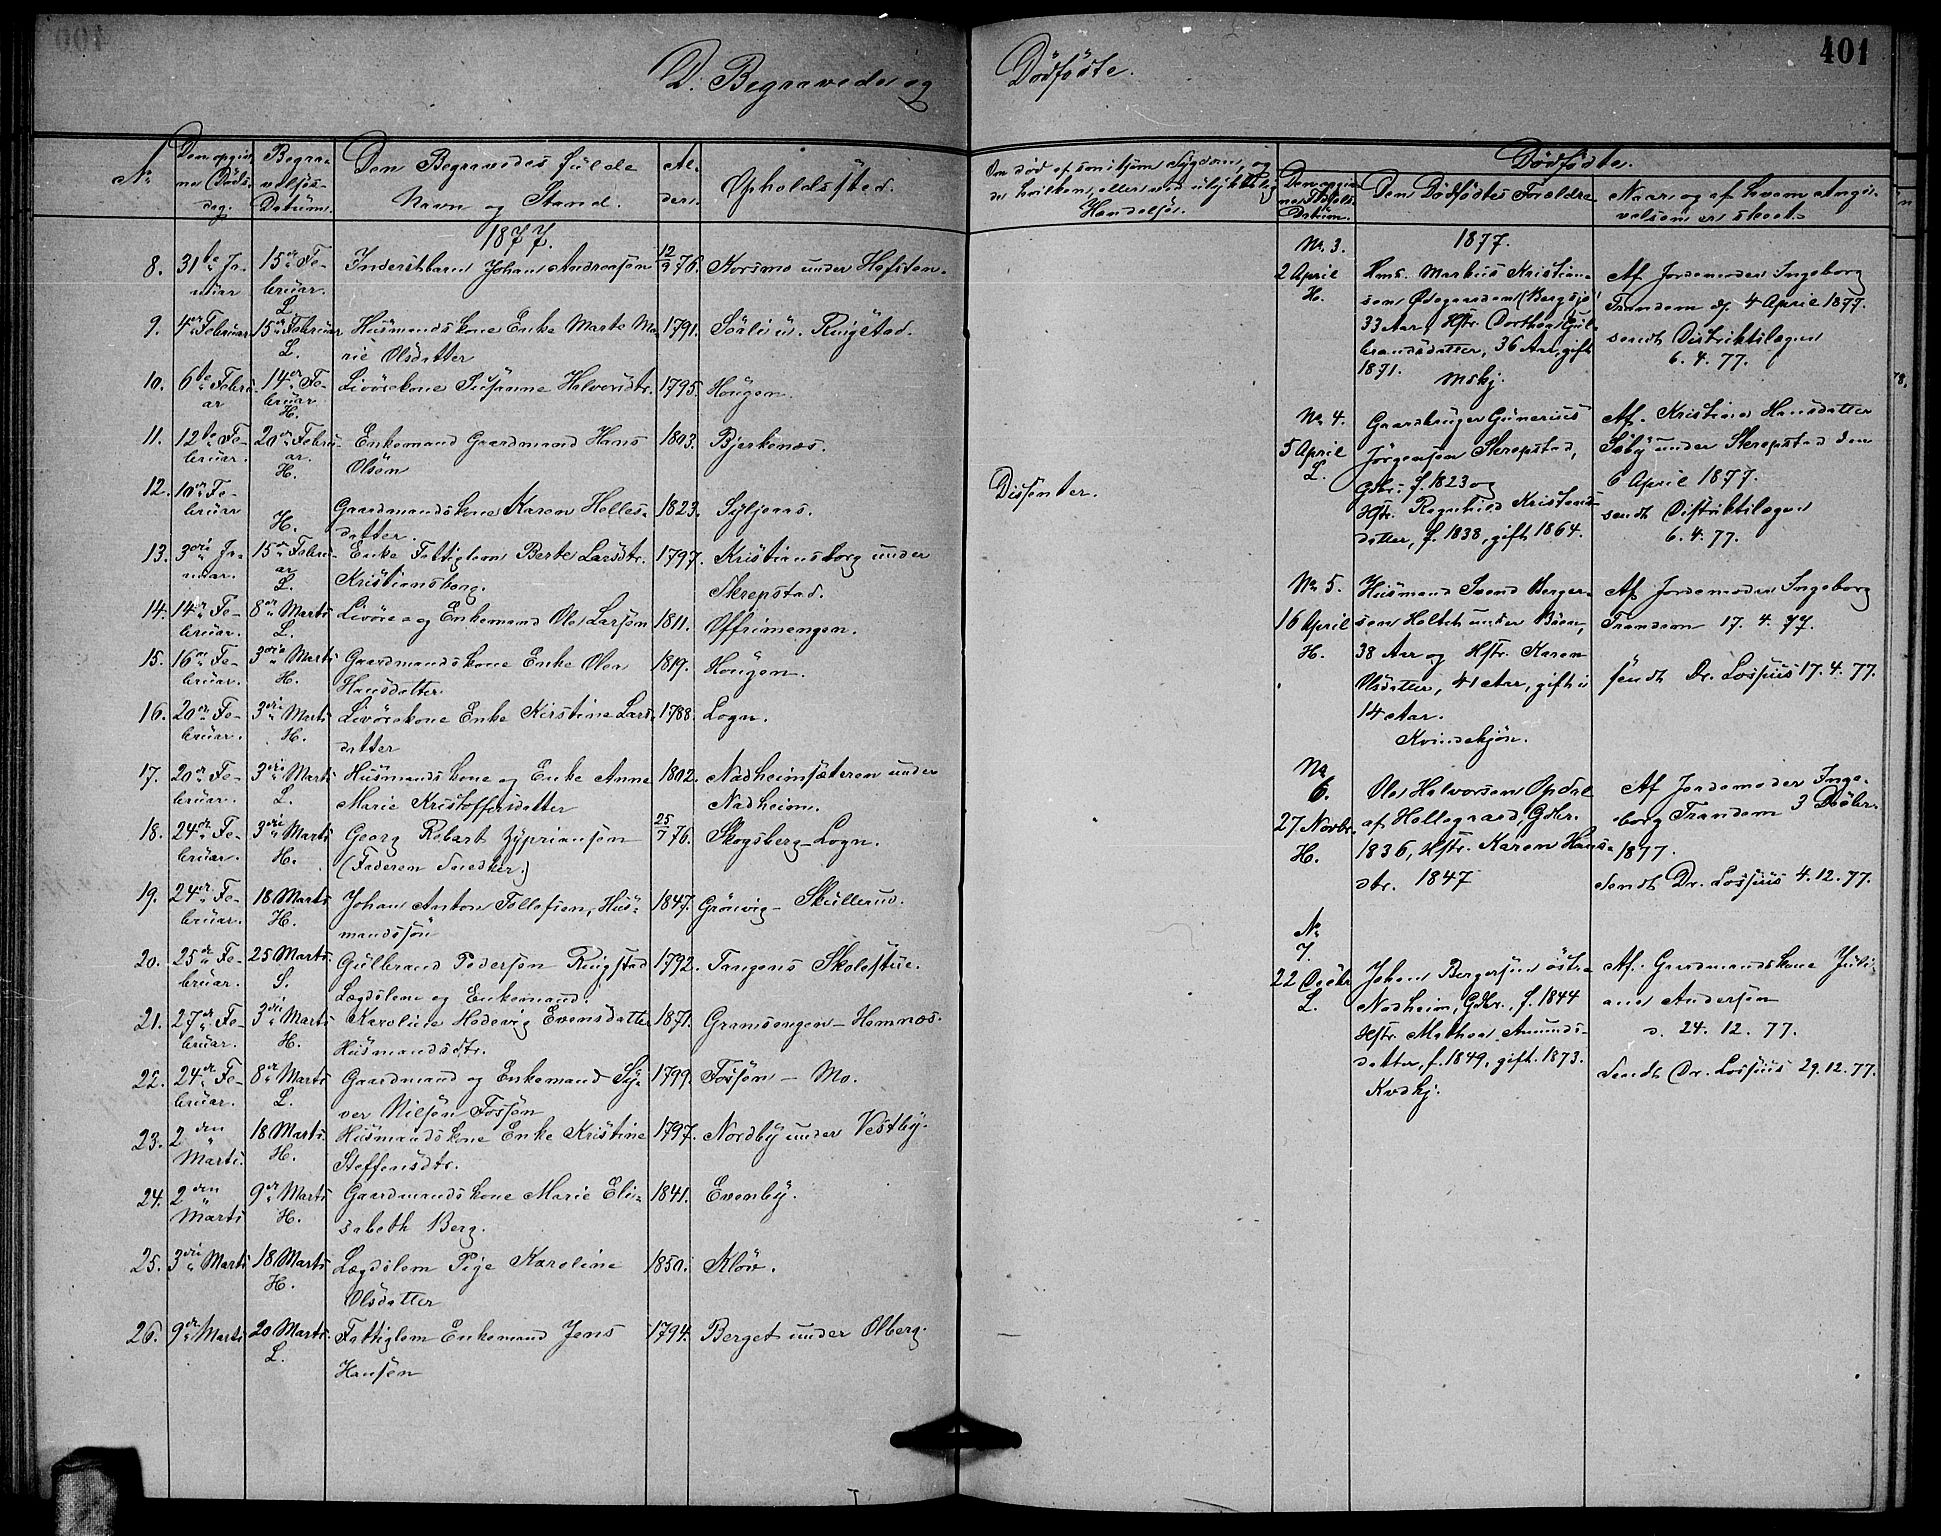 401
D. Begravede og Dödfödte.
No
Den opgivne Döds-dag.
Begravelses-Datum.
Den Begravedes fulde Navn og Stand.
Alder.
Opholdssted.
1877.
8. 31te Januar 15de Februar. L. Inderstbarn Johan Andreasen 12/9 76. Korsmo under Hofsten.
9. 4de Februar 15de Februar L. Husmandskone Enke Marte Marie Olsdatter 1791. Söli u. Ringstad.
10. 6te Februar 14de Februar H. Livörekone Susanne Halvorsdtr. 1795. Hougen.
11. 12te Februar. 20de Februar. H. Enkemand Gaardmand Hans Olsön 1803. Bjerkenæs.
12. 10de Februar H. Gaardmandskone Karen Hellesdatter. 1823. Syljeaas. Dissenter.
13. 3die Januar. 15de Februar L. Enke Fattiglem Berte Larsdtr. Kristiansborg. 1797. Kristiansborg under Skrepstad.
14. 14de Februar. 8de Marts L. Livöre- og Enkemand Ole Larsön 1811. Offrimengen.
15. 16de Februar. 3die Marts H. Gaardmandskone Enke Olea Hansdatter 1819. Hougen.
16. 20de Februar. 3die Marts H. Livörekone Enke Kirstine Larsdatter 1788. Logn.
17. 20de Februar. 3die Marts L. Husmandskone og Enke Anne Marie Kristoffersdatter 1802. Nadheimsæteren under Nadheim.
18. 24de Februar. 3die Marts H. Georg Robart Zypriansen (Faderen Snedker.) 25/7 76. Skogsberg-Logn.
19. 24de Februar. 18 Marts H. Johan Anton Tollefsen, Husmandssön 1847. Grönvig - Skullerud.
20. 25de Februar. 25 Marts. S. Gulbrand Pedersön Ringstad Lægdslem og Enkemand. 1792. Tangens Skolestue.
21. 27de Februar. 3die Marts H. Karoline Hedevig Evensdatter Husmandsdtr. 1871. Gramsengen - Hemnæs.
22. 24de Februar. 8de Marts L. Gaardmand og Enkemand Syver Nilsön Fossön 1799. Fossön - Mo.
23. 2den Marts. 18 Marts. H. Husmandskone Enke Kristine Steffensdtr. 1797. Nordby under Vestby.
24. 2den Marts 9de Marts H. Gaardmandskone Marie Elisabeth Berg. 1841. Evenby.
25. 3die Marts 18 Marts H. Lægdslem Pige Karoline Olsdatter 1850. Klöv.
26. 9de Marts 20 Marts. L. Fattiglem Enkemand Jens Hansen 1794. Berget under Olberg.
Dödfödte.
Den Dödfödtes Forældre
Naar og af hvem Angivelsen er skeet.
1877.
No. 3.
2 April H.
Hmd. Markus Kristiansen Ödegaarden (Bergsjö) 33 Aar, Hstr. Dorthea Gulbrandsdatter, 36 Aar, gift 1871. Mskj.
Af Jordemoder Ingeborg Trandem d. 4 April 1877. sendt Distriktslægen 6. 4. 77.
No. 4.
5 April L.
Gaardbruger Gunerius Jörgensen Skrepstad, Gdbr. f. 1823 og Hstr. Ragnhild Kristensdatter, f. 1838, gift 1864.
Af Kristine Hansdatter Söby under Skrepstad den 6 April 1877. sendt Distriktslægen 6. 4. 77.
No 5.
16 April H.
Husmand Svend Bergersen Holtet under Böen, 38 Aar og Hstr. Karen Olsdatter, 41 Aar, gift i 14 Aar. Kvindekjön.
Af Jordemoder Ingeborg Trandem 17. 4. 77. sendt Dr. Lossius 17. 4. 77.
No 6.
27 Novbr. H.
Ole Halvorsen Opdal af Hellegaard, Gdbr. 1836, Hstr. Karen Hansdtr. 1847
Af Jordemoder Ingeborg Trandem 3 Decbr. 1877. Sendt Dr. Lossius 4. 12. 77.
No 7.
22 Decbr. L.
Johan Bergersen östre Nadheim, Gdbr., f. 1844 Hstr. Mathea Amundsdatter, f. 1849, gift. 1873. Kvdkj.
Af. Gaardmandskone Juliane Andersön d. 24. 12. 77. Sendt Dr. Lossius 29. 12. 77.